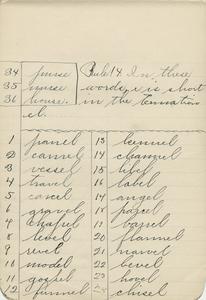 34 purse Rule 14. In these
35 nurse words, e is short
36 house. in the termination
el.
1 panel 13 kennel
2 camel 14 channel
3 vessel 15 libel
4 travel 16 label
5 cancel 17 angel
6 gravel 18 parcel
7 chapel 19 barrel
8 level 20 flannel
9 revel 21 marvel
10 model 22 bevel
11 gospel 23 hovel
12 funnel 24 chisel